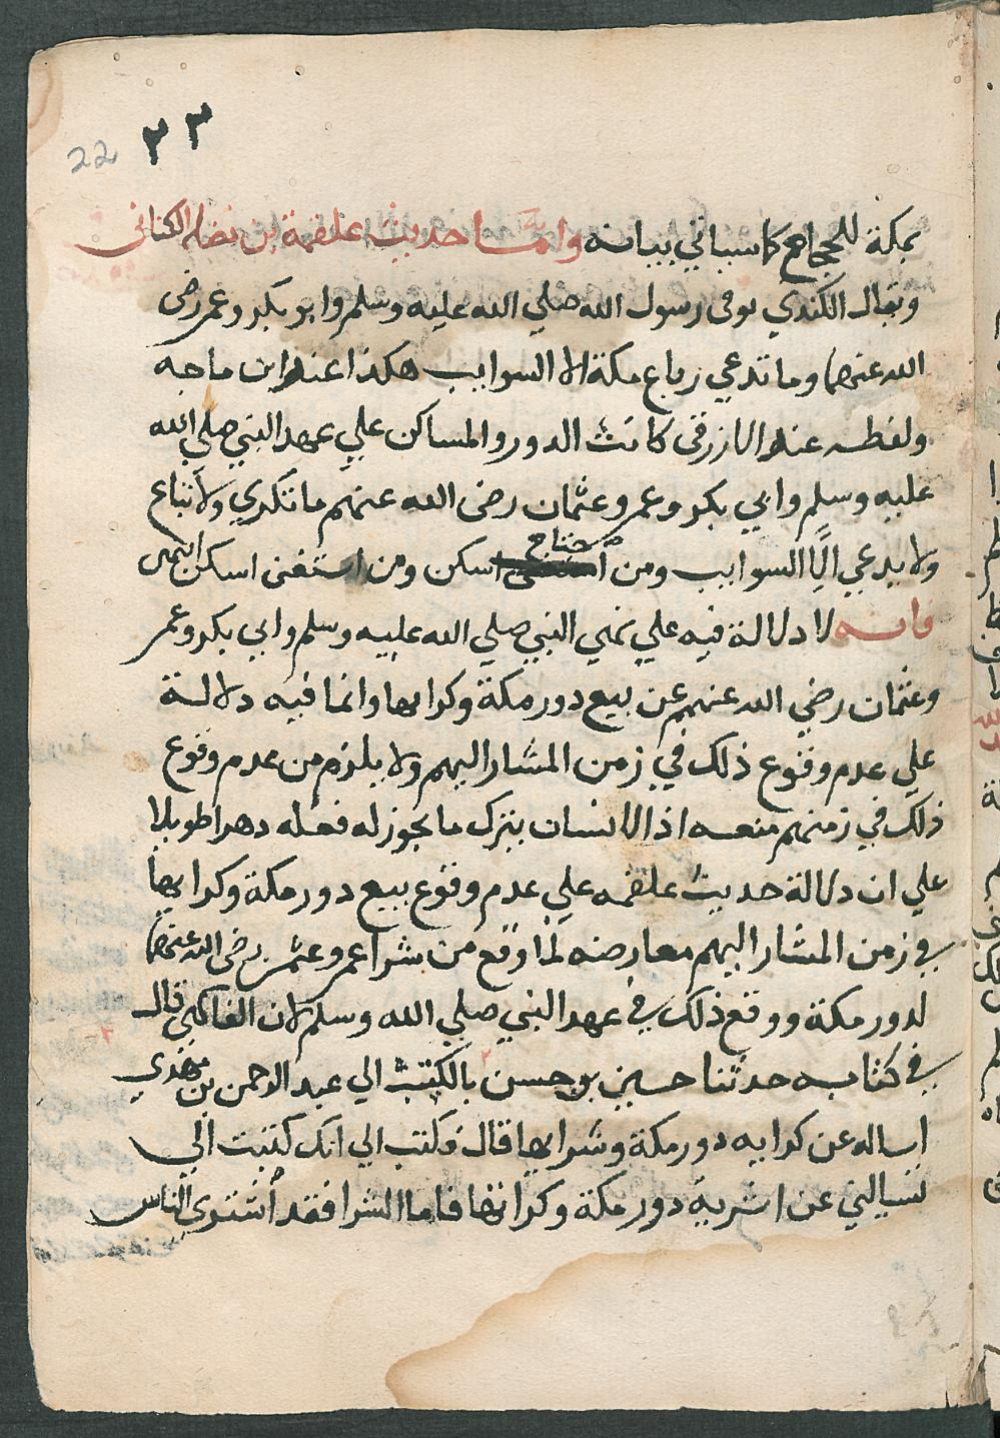 ٣٣ 22
بمكة للحجاج كما سياتي بيانه وامّا حديث علقمة بن نضلة الكناني
ويقال الكندي توفي رسول الله صلي الله عليه وسلم وابو بكر وعمر رضي
الله عنهما وما تدعي رباع مكة الا السوايب هكذا عند ابن ماجه
ولفظه عند الازرقي كانت الدور والمساكن علي عهد النبي صلي الله
عليه وسلم وابي بكر وعمر وعثمان رضي الله عنهم ما تكري ولا تباع
ولا يدعي اليا السوايب ومن احتاج اسكن ومن استغنى اسكن انتهى
فانه لا دلالة فيه علي نهي النبي صلي الله عليه وسلم وابي بكر وعمر
وعثمان رضي الله عنهم عن بيع دور مكة وكرايها وانما فيه دلالة
علي عدم وقوع ذلك في زمن المشار اليهم ولا يلزم من عدم وقوع
ذلك في زمنهم منعه اذ الانسان يترك ما يجوز له فعله دهرا طويلا
علي ان دلالة حديث علقمه علي عدم وقوع بيع دور مكة وكرايها
في زمن المشار اليهم معارضه لما وقع من شرا عمر وعثمن رضي الله عنهما
لدور مكة ووقع ذلك في عهد النبي صلي الله وسلم لان الفاكهي قال
في كتابه حدثنا حسين بن حسن بالكتبت الي عبد الرحمن بن مهدي
اساله عن كرايه دور مكة وشرايها قال فكتب الي انك كتبت الي
تسالني عن اشرية دور مكة وكرائها فاما الشرا فقد اشترى الناس